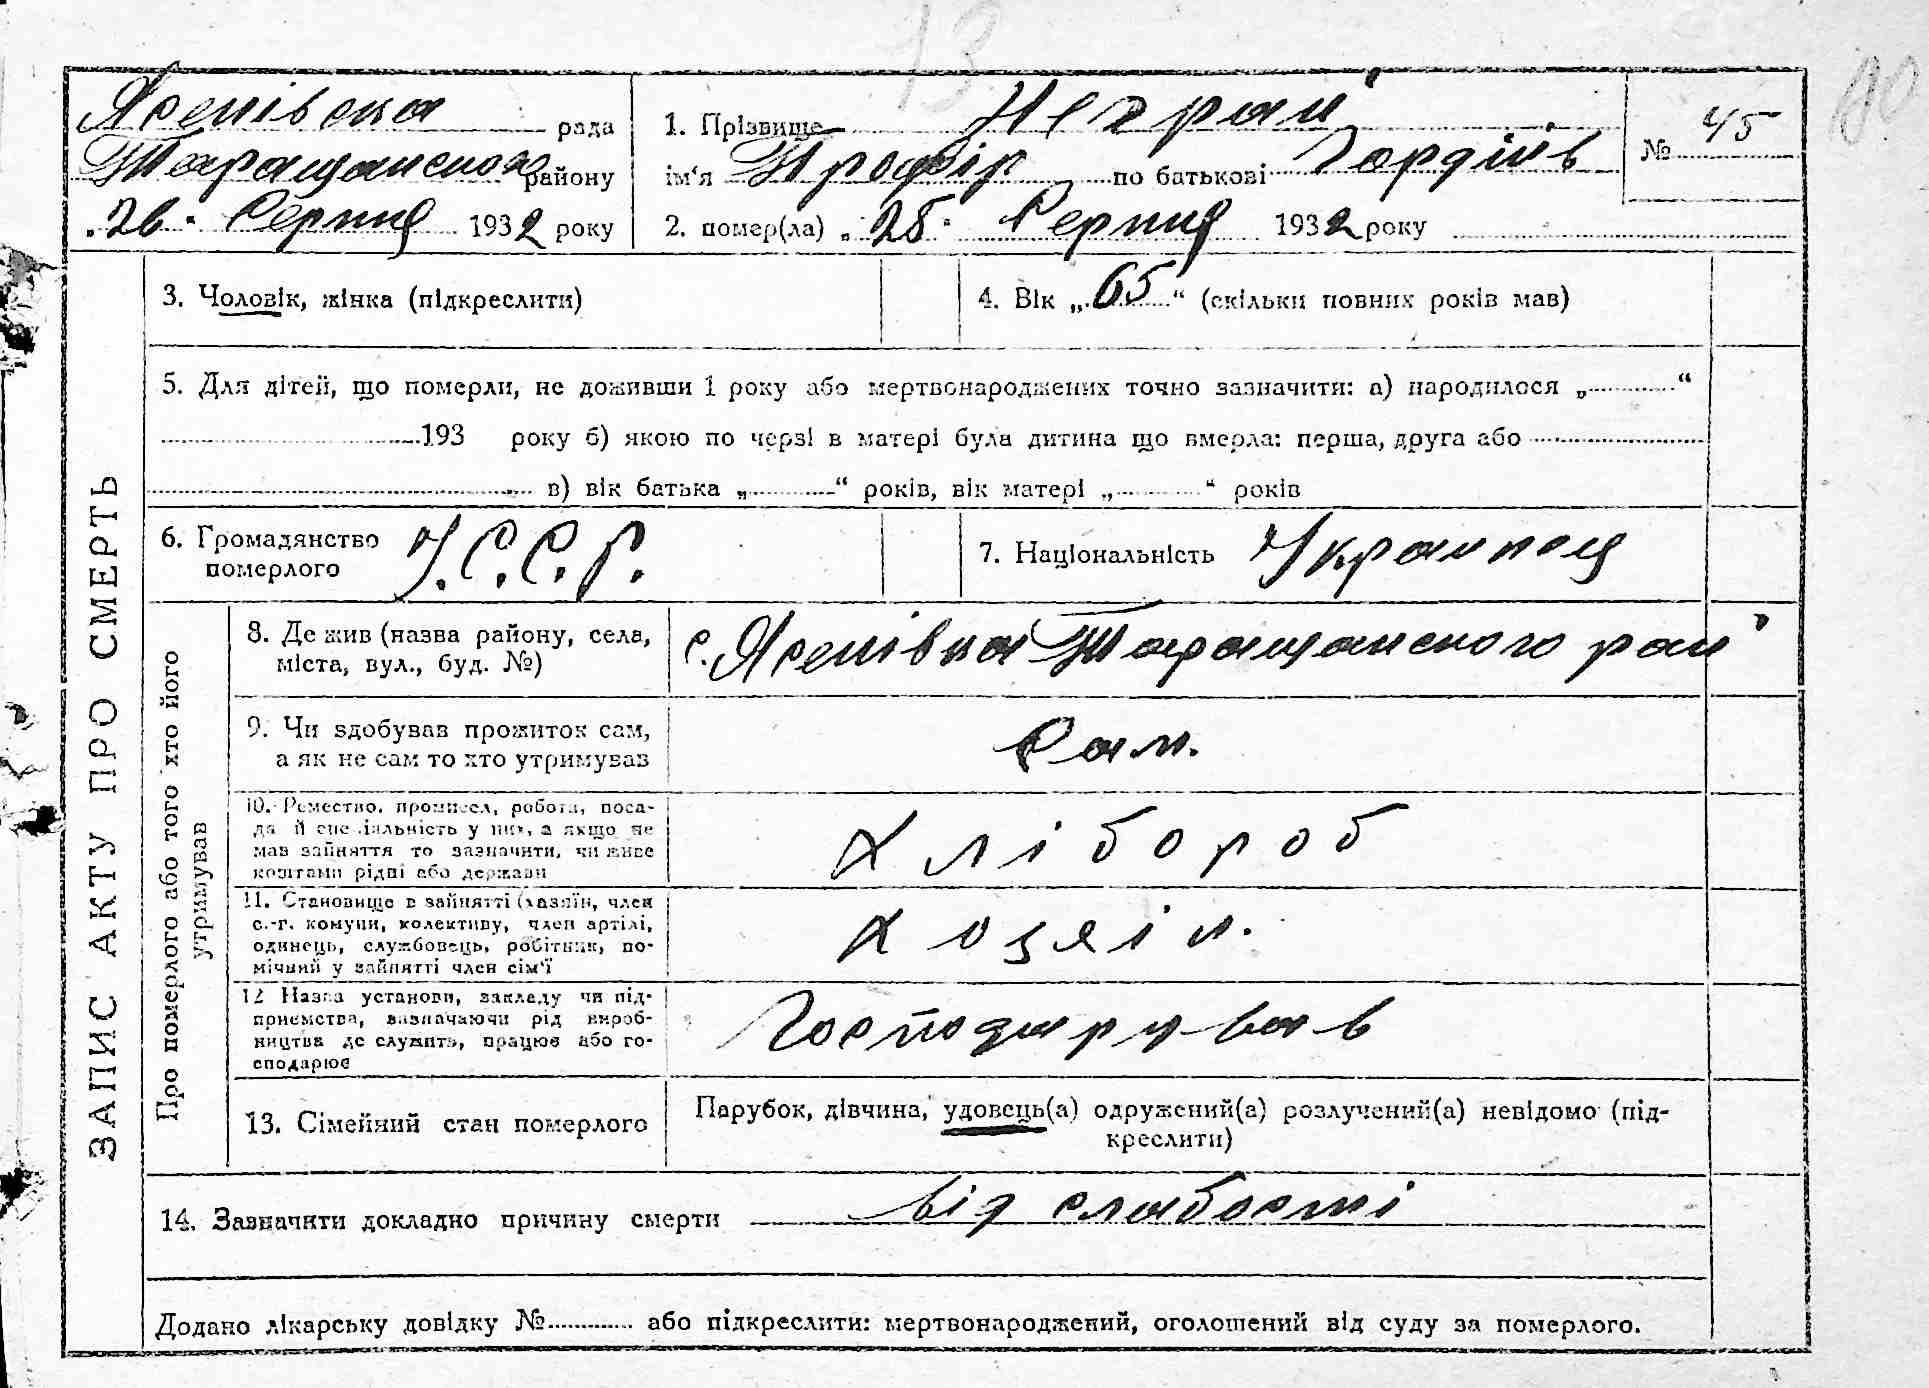 13
Ясенівска рада
Таращанского району
„26“ Серпня 1932 року
1. Прізвище Неграй
ім‘я Профір по батькові Гордіїв
2. помер(ла) „25“ Серпня 1932 року
№ 45
ЗАПИС АКТУ ПРО СМЕРТЬ
3. Чоловік, жінка (підкреслити)
4. Вік „65“ (скільки повних років мав)
5. Для дітей, що померли, не доживши 1 року або мертвонароджених точно зазначити: а) народилося „............“
193 року б) якою по черзі в матері була дитина що вмерла: перша, друга або
в) вік батька „............“ років, вік матері „............“ років
6. Громадянство
померлого
У.С.С.Р.
7. Національність Украинец
Про померлого або того хто його
утримував
8. Де жив (назва району, села,
міста, вул., буд. №)
с. Ясенівка Таращанского рай
9. Чи здобував прожиток сам,
а як не сам то хто утримував
Сам.
10. Ремество, промисел, робота, поса-
да й спеціальність у них, а якщо не
мав зайняття то зазначити, чи живе
коштами рідні або держави
Хлібороб
11. Становище в зайнятті (хазяїн, член
с.-г. комуни, колективу, член артілі,
одинець, службовець, робітник, по-
мічний у зайнятті член сім‘ї
Хозяін.
12 Назва установи, закладу чи під-
приємства, зазначаючи рід вироб-
ництва де служить, працює або го-
сподарює
Господарував
13. Сімейний стан померлого
Парубок, дівчина, удовець(а) одружений(а) розлучений(а) невідомо (під-
креслити)
14. Зазначити докладно причину смерти від слабости
Додано лікарську довідку №............ або підкреслити: мертвонароджений, оголошений від суду за померлого.